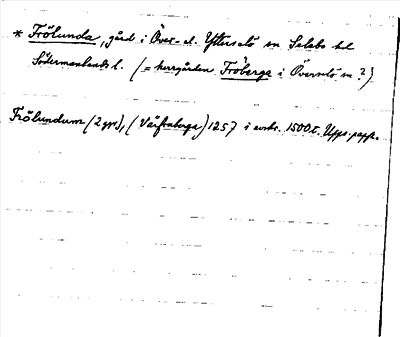 * Frölunda, gård i Över- el. Ytterselö sn Selebo hd
Södermanlands l. (= herrgården Fröberga i Överselö sn?)
Frölundum (2 ggr), (Väsfraberga) 1257 i avskr. 1500t. Upps. papp.